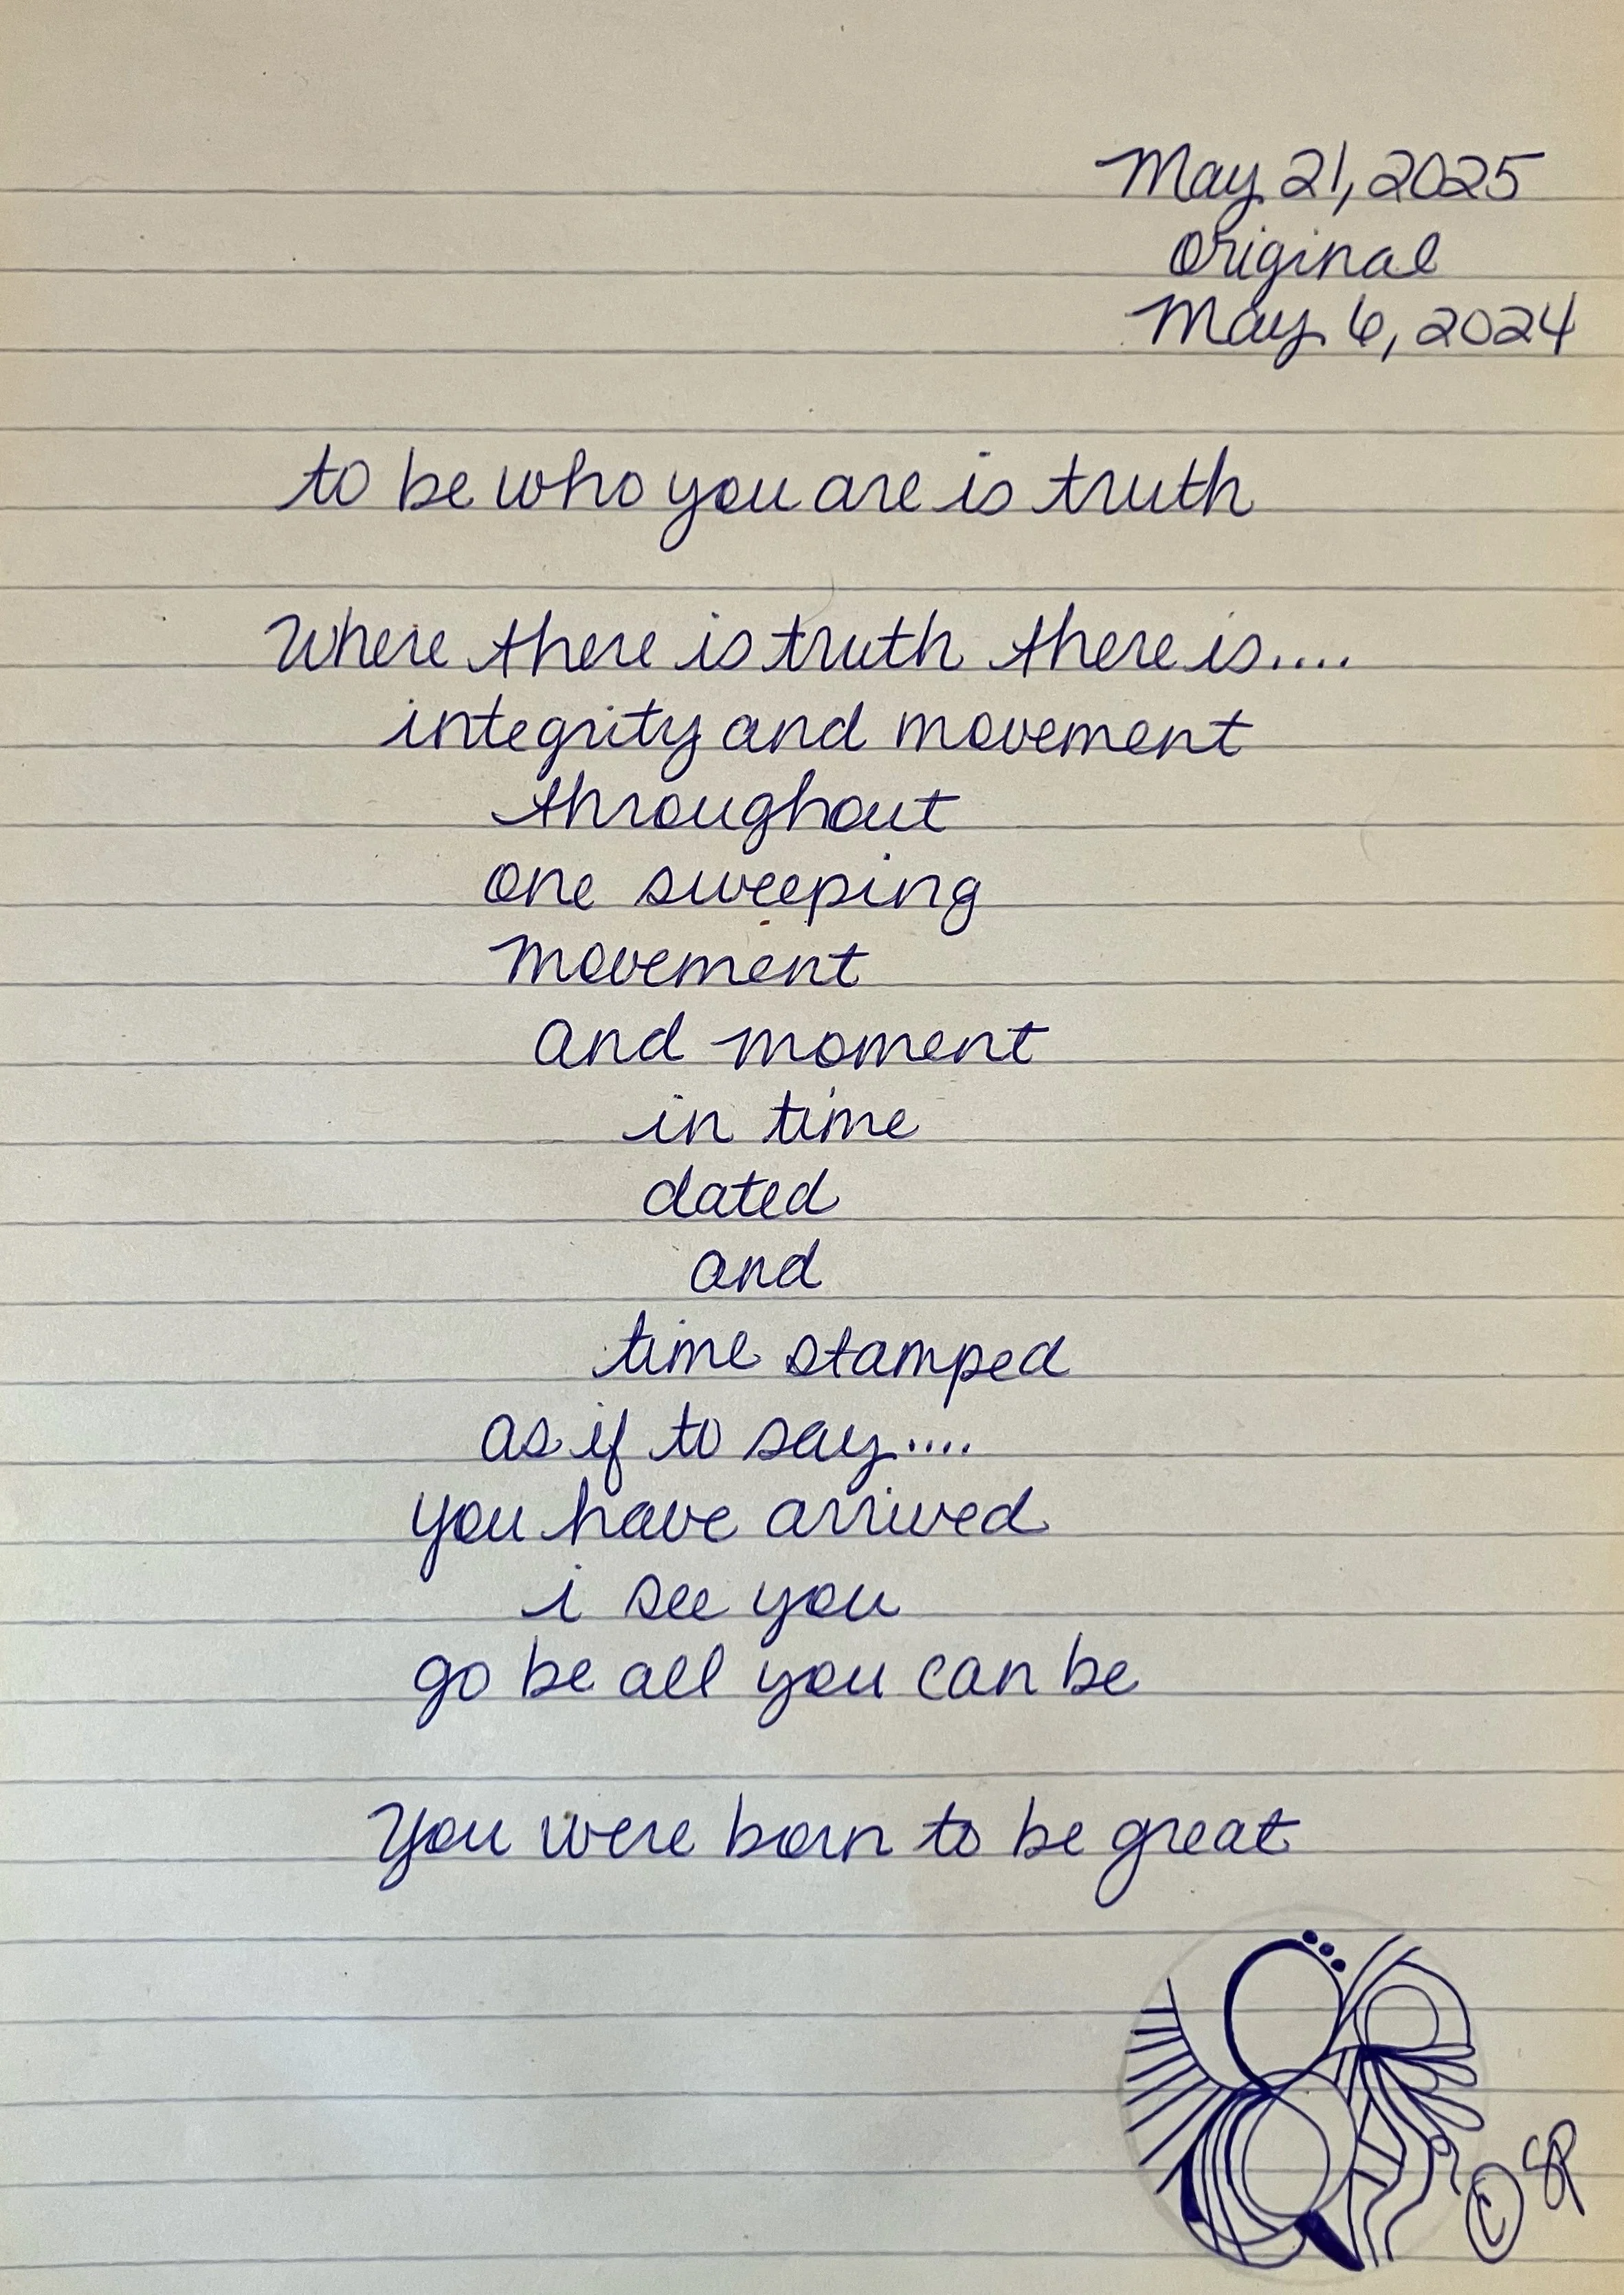 May 21, 2025
Original
May 6, 2024
to be who you are is truth
Where there is truth there is....
integrity and movement
throughout
one sweeping
movement
and moment
in time
dated
and
time stamped
as if to say....
you have arrived
i see you
go be all you can be
You were born to be great
© SP